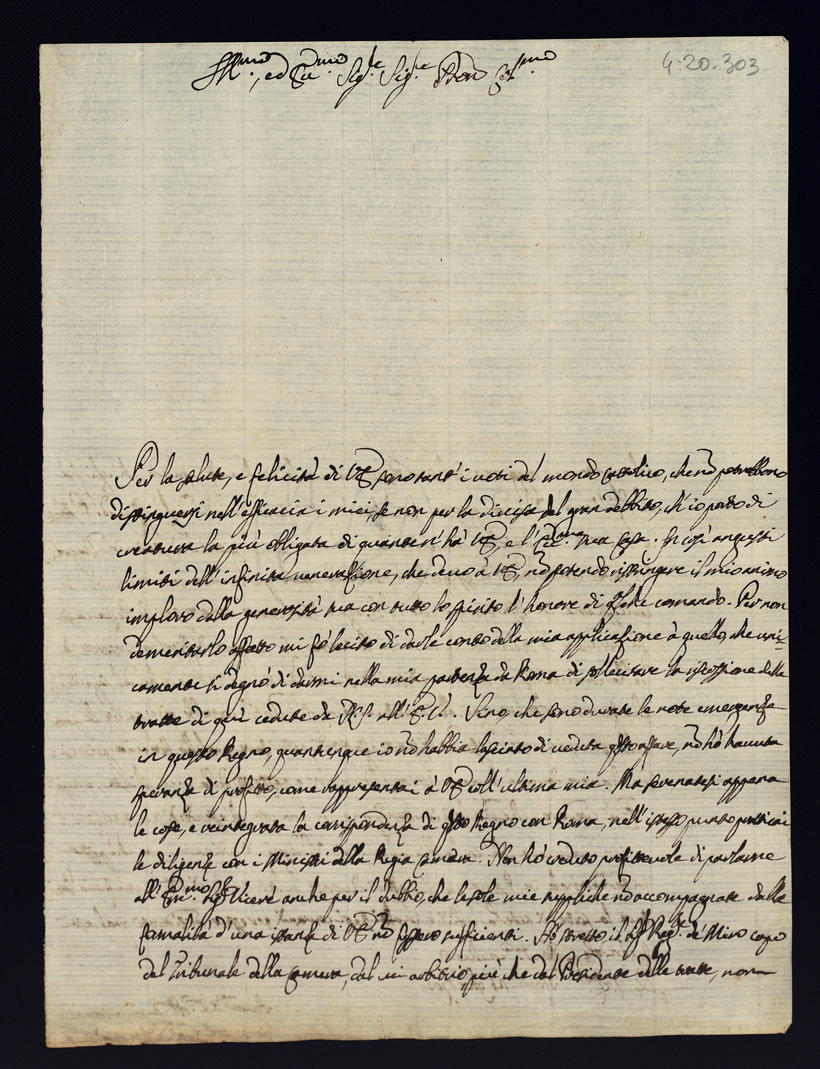 Ill.mo, ed Ecc.mo Sig.re Sig.re Pron Col.mo
4-20-303
Per la salute, e felicità di V.E. sono tanti i voti del mondo cattolico, che nõ potrebbono
distinguersi nell'efficacia i miei, se non per la divisa del gran debbito, ch'io porto di
creatura la più obligata di quante n'hà V.E., e l'Ecc.ma sua Casa. In così angusti
limiti dell'infinita venerazione, che devo à V.E., nõ potendo ristringere il mio animo
imploro dalla generosità sua con tutto lo spirito l'honore di qlche comando. Per non
demeritarlo affatto mi fò lecito di darle conto della mia applicazione à quello, che uni-
camente si degnò di darmi nella mia partenza da Roma di sollecitare la riscossione delle
tratte di quì cedute da all'E.V. Sino che sono durate le note emergenze
in questo Regno, quantunque io nõ habbia lasciato di veduta qsto affare, nõ hò havuta
speranza di profitto, come rappresentai à V.E. coll'ultima mia. Ma serenatesi appena
le cose, e reintegrata la corrispondenza di qsto Regno con Roma, nell'istesso punto praticai
le diligenze con i Ministri della Regia Camera. Non hò creduto profittevole di parlarne
all'Em.mo Sig.r Vicerè anche per il dubbio, che le sole mie suppliche nõ accompagnate dalla
formalità d'una istanza di V.E. nõ fossero sufficienti. Hò stretto il Sig.r Regte di Miro capo
del Tribunale della Camera, dal cui arbitrio, più che dal Presidente delle tratte, non